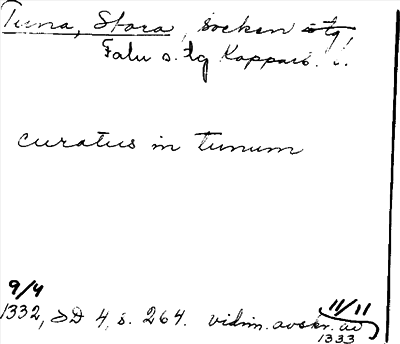 Tuna, Stora, socken stg
Falu s. tg Kopparb. l.
curatus in tunum
9/4
1332, SD 4, s. 264. vidim. avskr. av 11/11
1333